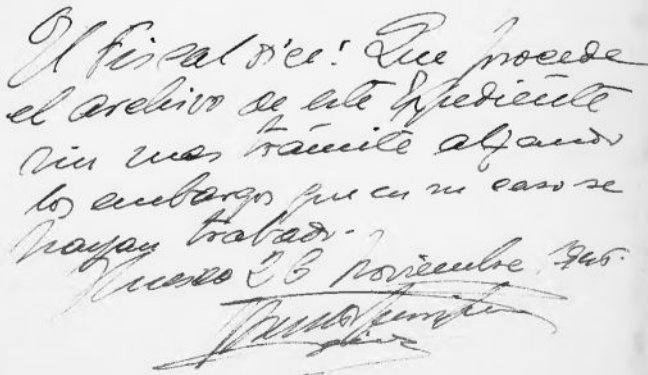 El Fiscal dice: Que procede
el archivo de este Expediente
sin mas trámite alzando
los embargos que en su caso se
hayan trabado.-
Huesca 26 noviembre 1945.